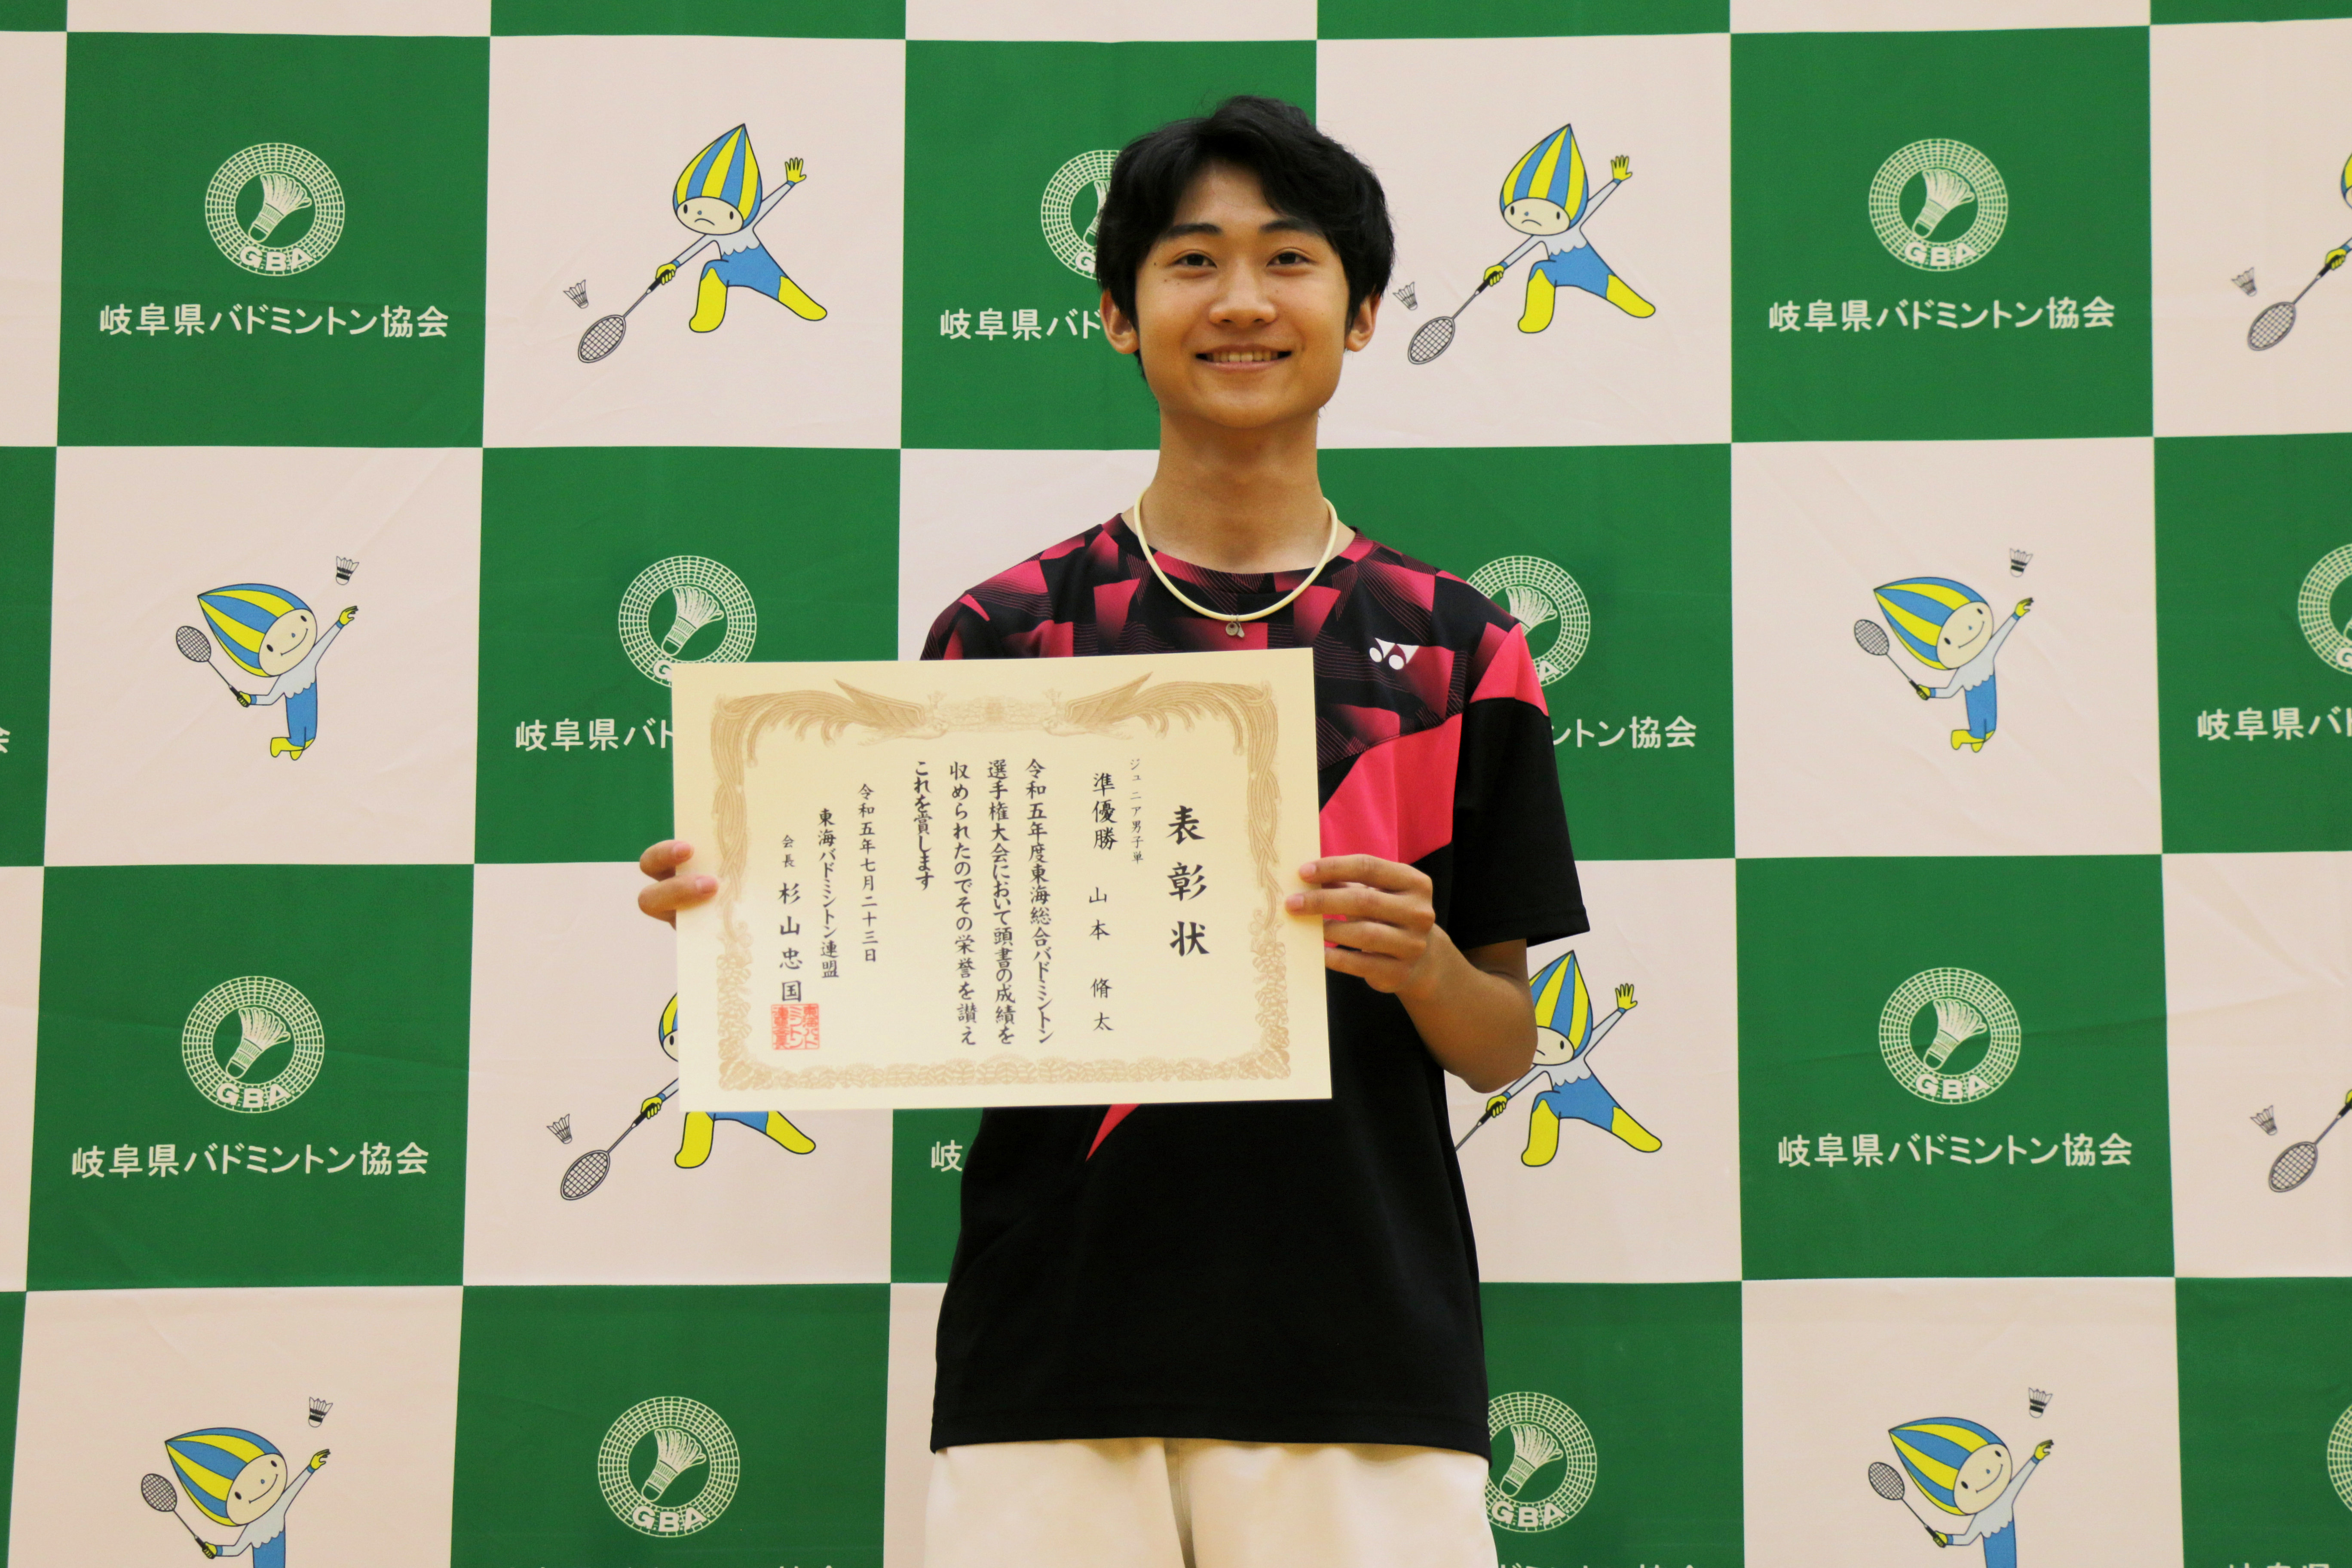 GBA
岐阜県バドミントン協会
岐阜県バド
GBA
岐阜県バドミントン協会
岐阜県バド
ントン協会
岐阜県バ
表彰状
ジュニア男子単
準優勝 山本 脩太
令和五年度東海総合バドミントン
選手権大会において頭書の成績を
収められたのでその栄誉を讃え
これを賞します
令和五年七月二十三日
東海バドミントン連盟
会長 杉山忠国
GBA
岐阜県バドミントン協会
岐
GBA
岐阜県バドミントン協会
GBA
GBA